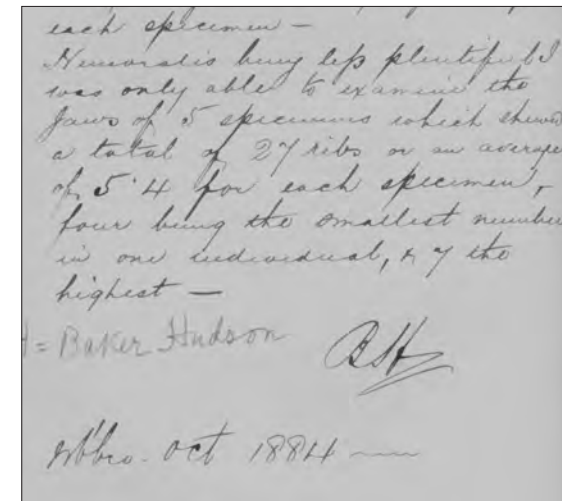 each specimen —
Nemoralis being less plentiful I
was only able to examine the
Jaws of 5 specimens which shewed
a total of 27 ribs or an average
of 5·4 for each specimen,
four being the smallest number
in one individual, & 7 the
highest —
H = Baker Hudson
BH
Oct 1884 —